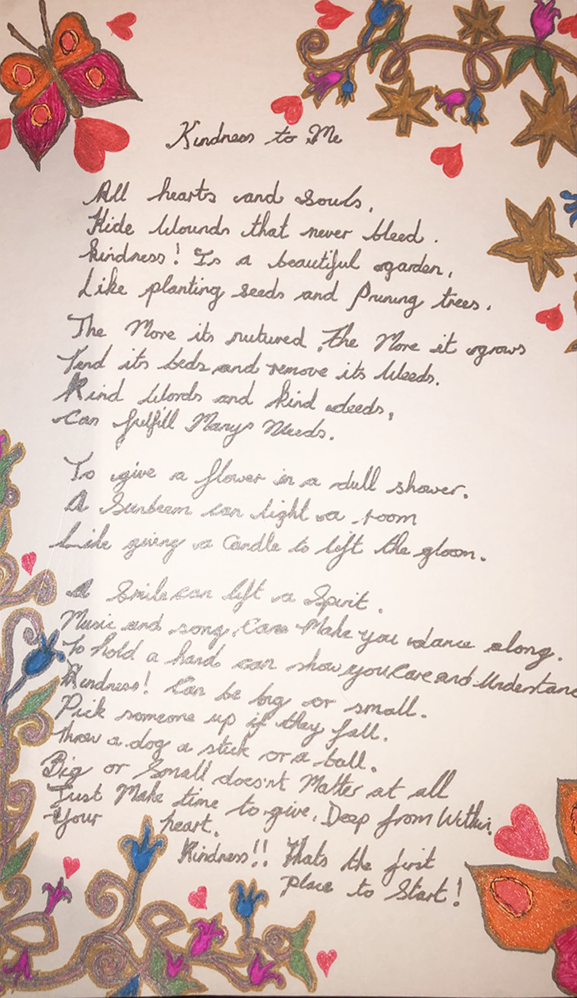 Kindness to Me
All hearts and souls,
Hide Wounds that never bleed.
Kindness! Is a beautiful garden,
Like planting seeds and Pruning trees.
The More its nutured, the More it grows
Tend its beds and remove its Weeds.
Kind Words and kind deeds,
Can fulfill Manys Needs.
To give a flower in a dull shower.
A Sunbeam can light a room
Like giving a Candle to lift the gloom.
A Smile can lift a Spirit.
Music and song, Can Make you dance along.
To hold a hand can show you Care and Understand
Kindness! Can be big or small.
Pick someone up if they fall.
Throw a dog a stick or a ball.
Big or Small doesn't Matter at all
Just Make time to give, Deep from Within
Your heart.
Kindness!! Thats the first
Place to Start!